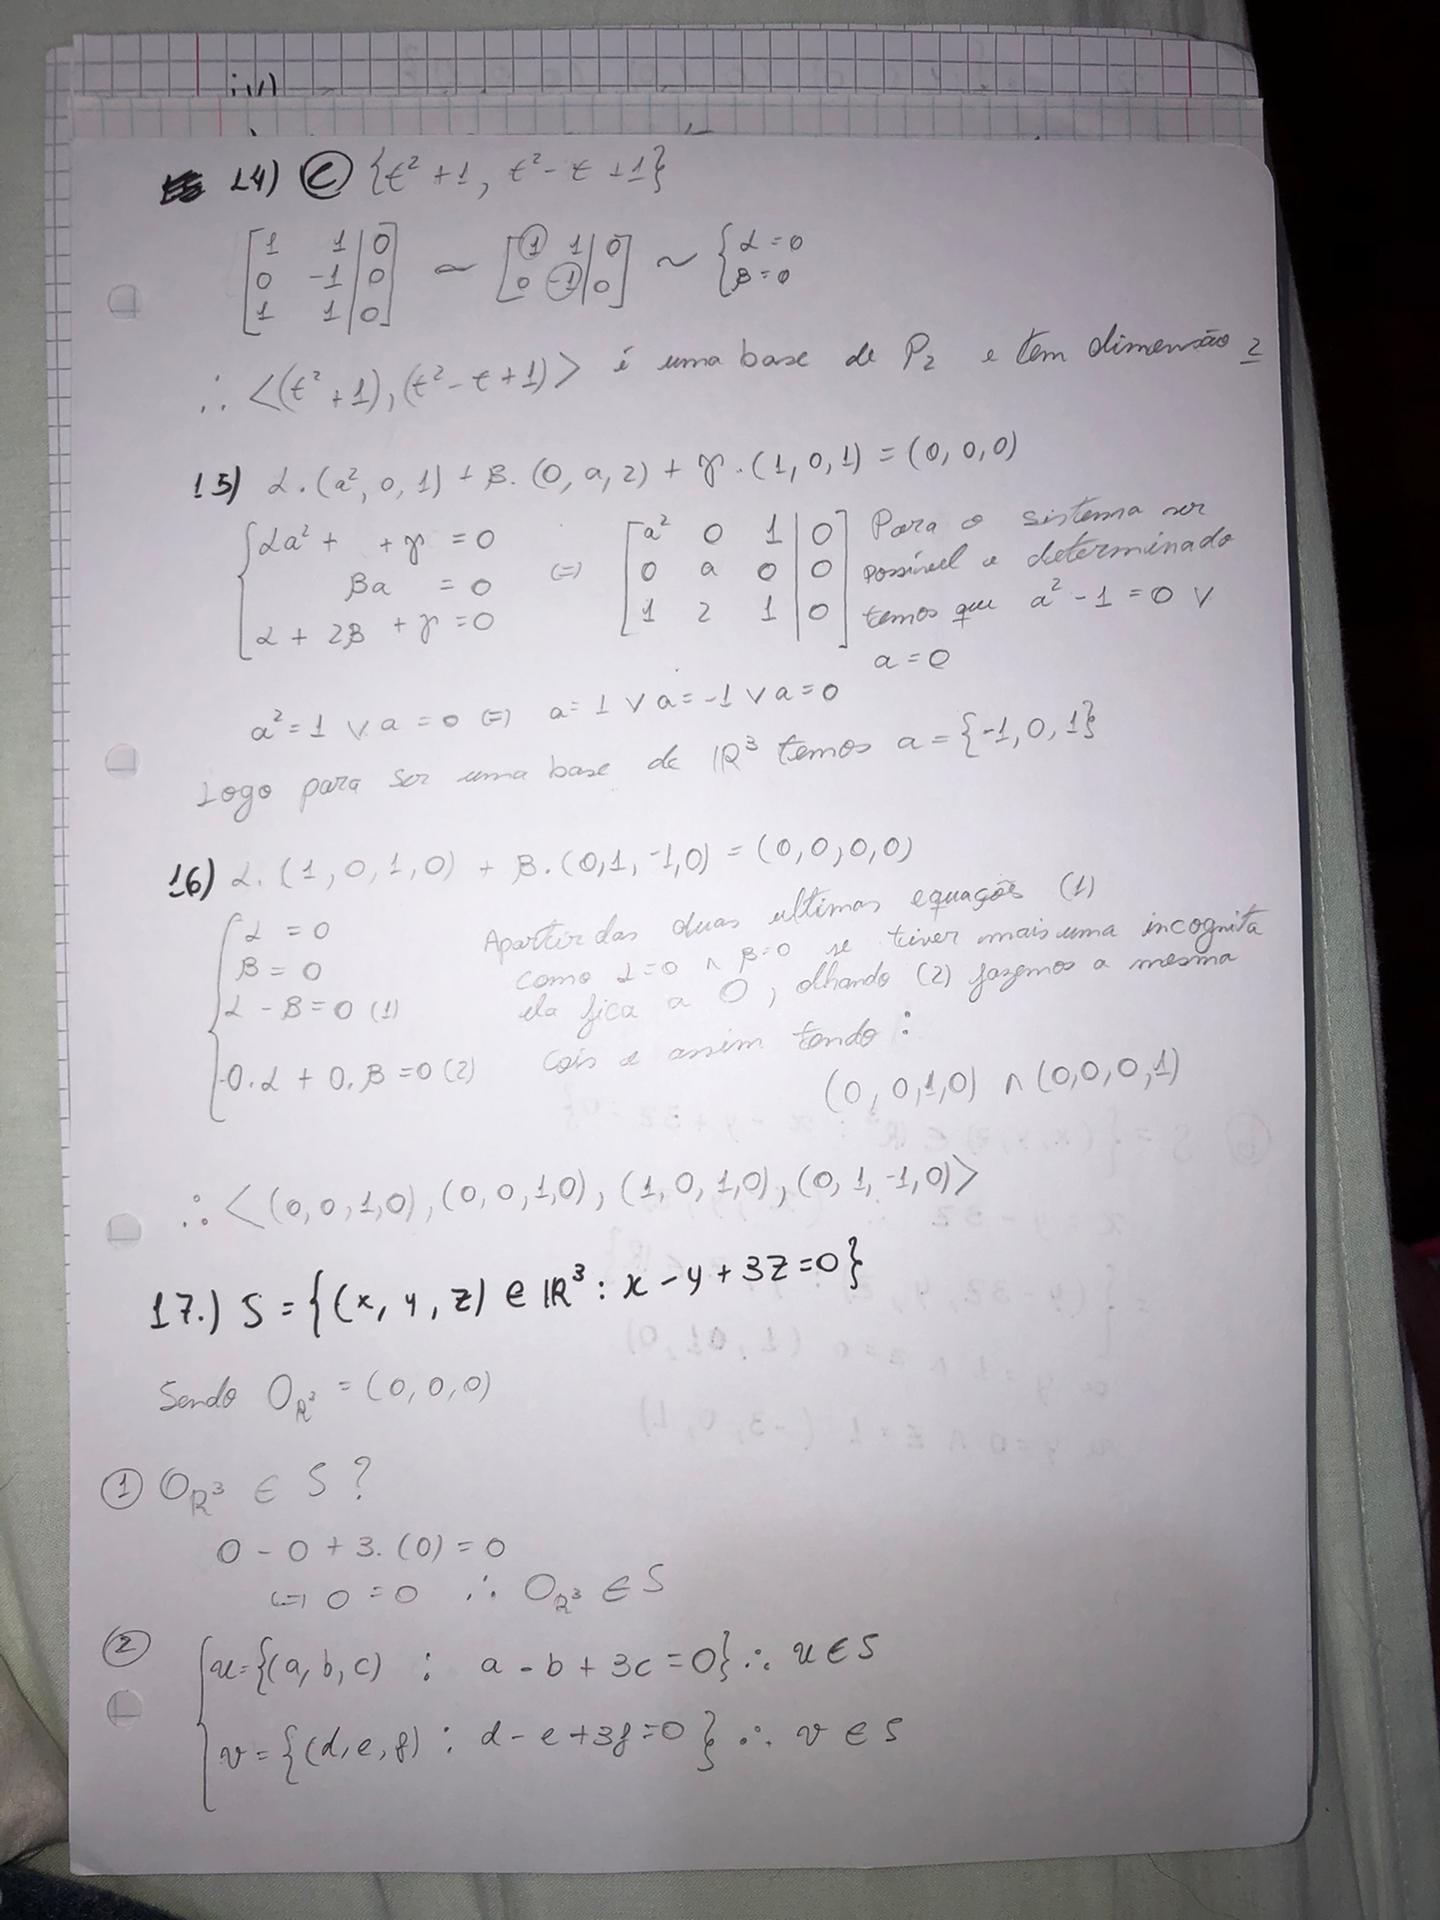 iv)
14) C {t² + 1, t² - t + 1}
[1 1 | 0] ~ [1 1 | 0] ~ {α = 0
[0 -1 | 0] [0 -1 | 0] β = 0
[1 1 | 0]
∴ <(t² + 1), (t² - t + 1)> é uma base de P₂ e tem dimensão 2
15) α . (a², 0, 1) + β . (0, a, 2) + γ . (1, 0, 1) = (0, 0, 0)
{αa² + + γ = 0 (=) [a² 0 1 | 0] Para o sistema ser
βa = 0 [0 a 0 | 0] possível e determinado
α + 2β + γ = 0 [1 2 1 | 0] temos que a² - 1 = 0 ∨
a = 0
a² = 1 ∨ a = 0 (=) a = 1 ∨ a = -1 ∨ a = 0
Logo para ser uma base de ℝ³ temos a = {-1, 0, 1}
16) α . (1, 0, 1, 0) + β . (0, 1, -1, 0) = (0, 0, 0, 0)
{α = 0 Apartir das duas ultimas equações (1)
β = 0 como α = 0 ∧ β = 0 se tiver mais uma incognita
α - β = 0 (1) ela fica a 0, olhando (2) fazemos a mesma
0 . α + 0 . β = 0 (2) cois e assim tendo :
(0, 0, 1, 0) ∧ (0, 0, 0, 1)
∴ <(0, 0, 1, 0), (0, 0, 1, 0), (1, 0, 1, 0), (0, 1, -1, 0)>
17.) S = {(x, y, z) ∈ ℝ³ : x - y + 3z = 0}
Sendo O_ℝ³ = (0, 0, 0)
① O_ℝ³ ∈ S ?
0 - 0 + 3 . (0) = 0
(=) 0 = 0 ∴ O_ℝ³ ∈ S
② {u = {(a, b, c) : a - b + 3c = 0} ∴ u ∈ S
v = {(d, e, f) : d - e + 3f = 0} ∴ v ∈ S